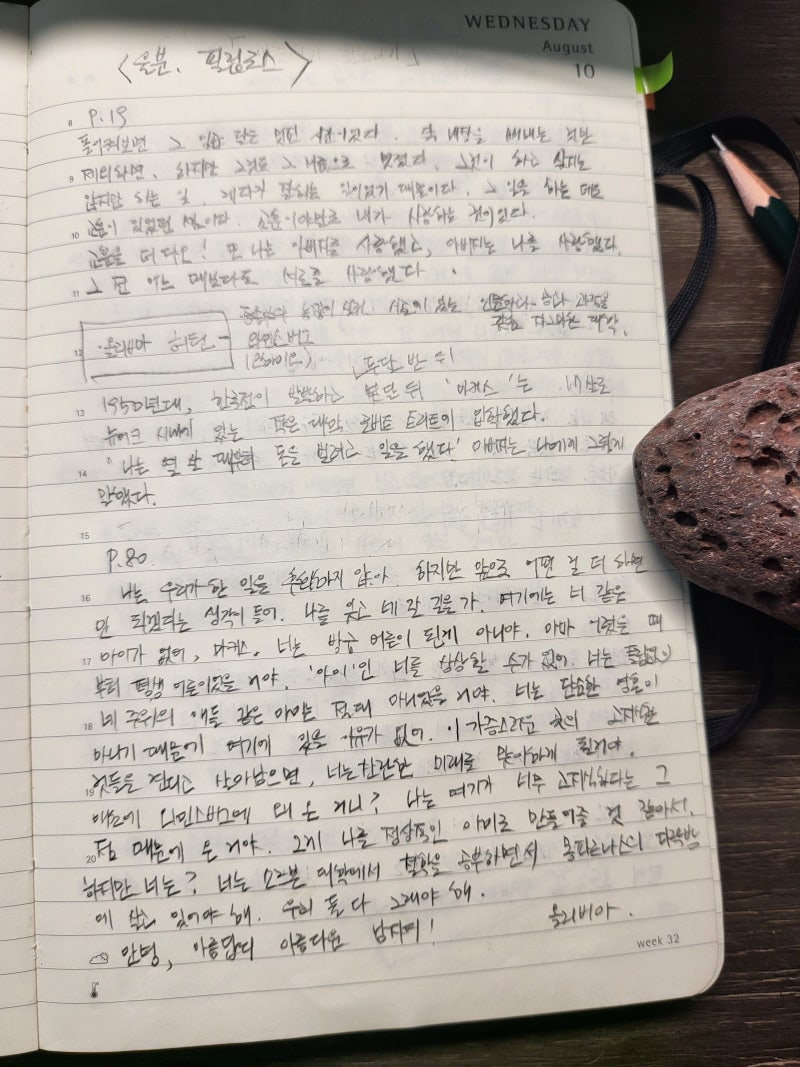 WEDNESDAY
August
10
<울분, 필립로스>
8 P.19
돌이켜보면 그 일은 멋진 일이었다. 내장을 빼내는 것만
9 제외하면. 하지만 그것도 그 나름으로 멋졌다. 그것이 하고 싶지는
않지만 하는 일, 게다가 잘하는 일이었기 때문이다. 그 일을 하는 데는
10 교훈이 있었던 셈이다. 교훈이야말로 내가 사랑하는 것이었다.
교훈을 더 다오! 또 나는 아버지를 사랑했고, 아버지는 나를 사랑했다.
11 그 전 어느 때보다도 서로를 사랑했다.
12 올리비아 허턴
와인스버그
(오하이오)
두달 반 뒤
13 1950년대, 한국전이 발발하고 두달 뒤 '마커스'는
뉴어크 시내에 있는 작은 대학 로버트 트리트에 입학했다.
14 "나는 열 살 때부터 돈을 벌려고 일을 했다" 아버지는 나에게 그렇게
말했다.
15
P.80
16 나는 우리가 한 일을 후회하지 않아. 하지만 앞으로 어떤 걸 더 하면
안 되겠다는 생각이 들어. 나를 잊고 네 갈 길을 가. 여기에는 너 같은
17 아이가 없어, 마커스. 너는 방금 어른이 된게 아니야. 아마 어렸을 때
부터 평생 어른이었을 거야. '아이'인 너를 상상할 수가 없어. 너는 틀림없이
18 네 주위의 애들 같은 아이는 절대 아니었을 거야. 너는 단순한 영혼이
아니기 때문에 여기에 있을 이유가 없어. 이 가증스러운 곳의 고지식한
19 것들을 견디고 살아남으면, 너는 찬란한 미래를 맞이하게 될거야.
애초에 와인스버그에 왜 온 거니? 나는 여기가 너무 고지식하다는 그
20 점 때문에 온 거야. 그게 나를 정상적인 아이로 만들어줄 것 같아서.
하지만 너는? 너는 소르본 대학에서 철학을 공부하면서 몽파르나스의 다락방
에 살고 있어야 해. 우리 둘 다 그래야 해.
안녕, 아름답디 아름다운 남자여! 올리비아.
week 32